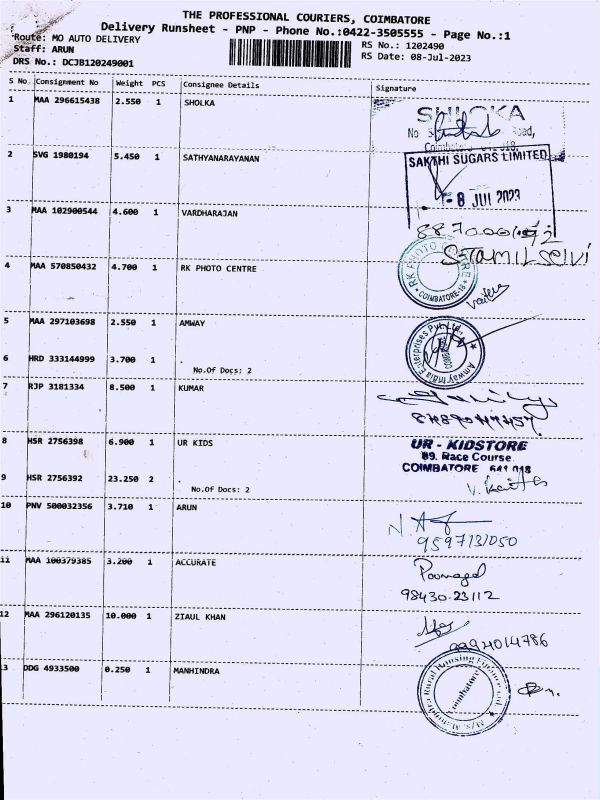 THE PROFESSIONAL COURIERS, COIMBATORE
Delivery Runsheet - PNP - Phone No.:0422-3505555 - Page No.:1
Route: MO AUTO DELIVERY
Staff: ARUN
DRS No.: DCJB120249001
RS No.: 1202490
RS Date: 08-Jul-2023
S No. Consignment No Weight PCS Consignee Details Signature
1 MAA 296615438 2.550 1 SHOLKA
SHOLKA
No Road,
2 SVG 1980194 5.450 1 SATHYANARAYANAN
SAKTHI SUGARS LIMITED
- 8 JUL 2023
3 MAA 102900544 4.600 1 VARDHARAJAN
S.TAMILSElVi
4 MAA 570850432 4.700 1 RK PHOTO CENTRE
RK PHOTO CENTRE
COIMBATORE-18
5 MAA 297103698 2.550 1 AMWAY
Amway India Enterprises Pvt. Ltd.
6 HRD 333144999 3.700 1 .
No.Of Docs: 2
7 RJP 3181334 8.500 1 KUMAR
8 HSR 2756398 6.900 1 UR KIDS
UR - KIDSTORE
89. Race Course
COIMBATORE 641 018
9 HSR 2756392 23.250 2 .
No.Of Docs: 2
10 PNV 500032356 3.710 1 ARUN
9597131050
11 MAA 100379385 3.200 1 ACCURATE
98430.23112
12 MAA 296120135 10.000 1 ZIAUL KHAN
9994014786
13 DDG 4933500 0.250 1 MANHINDRA